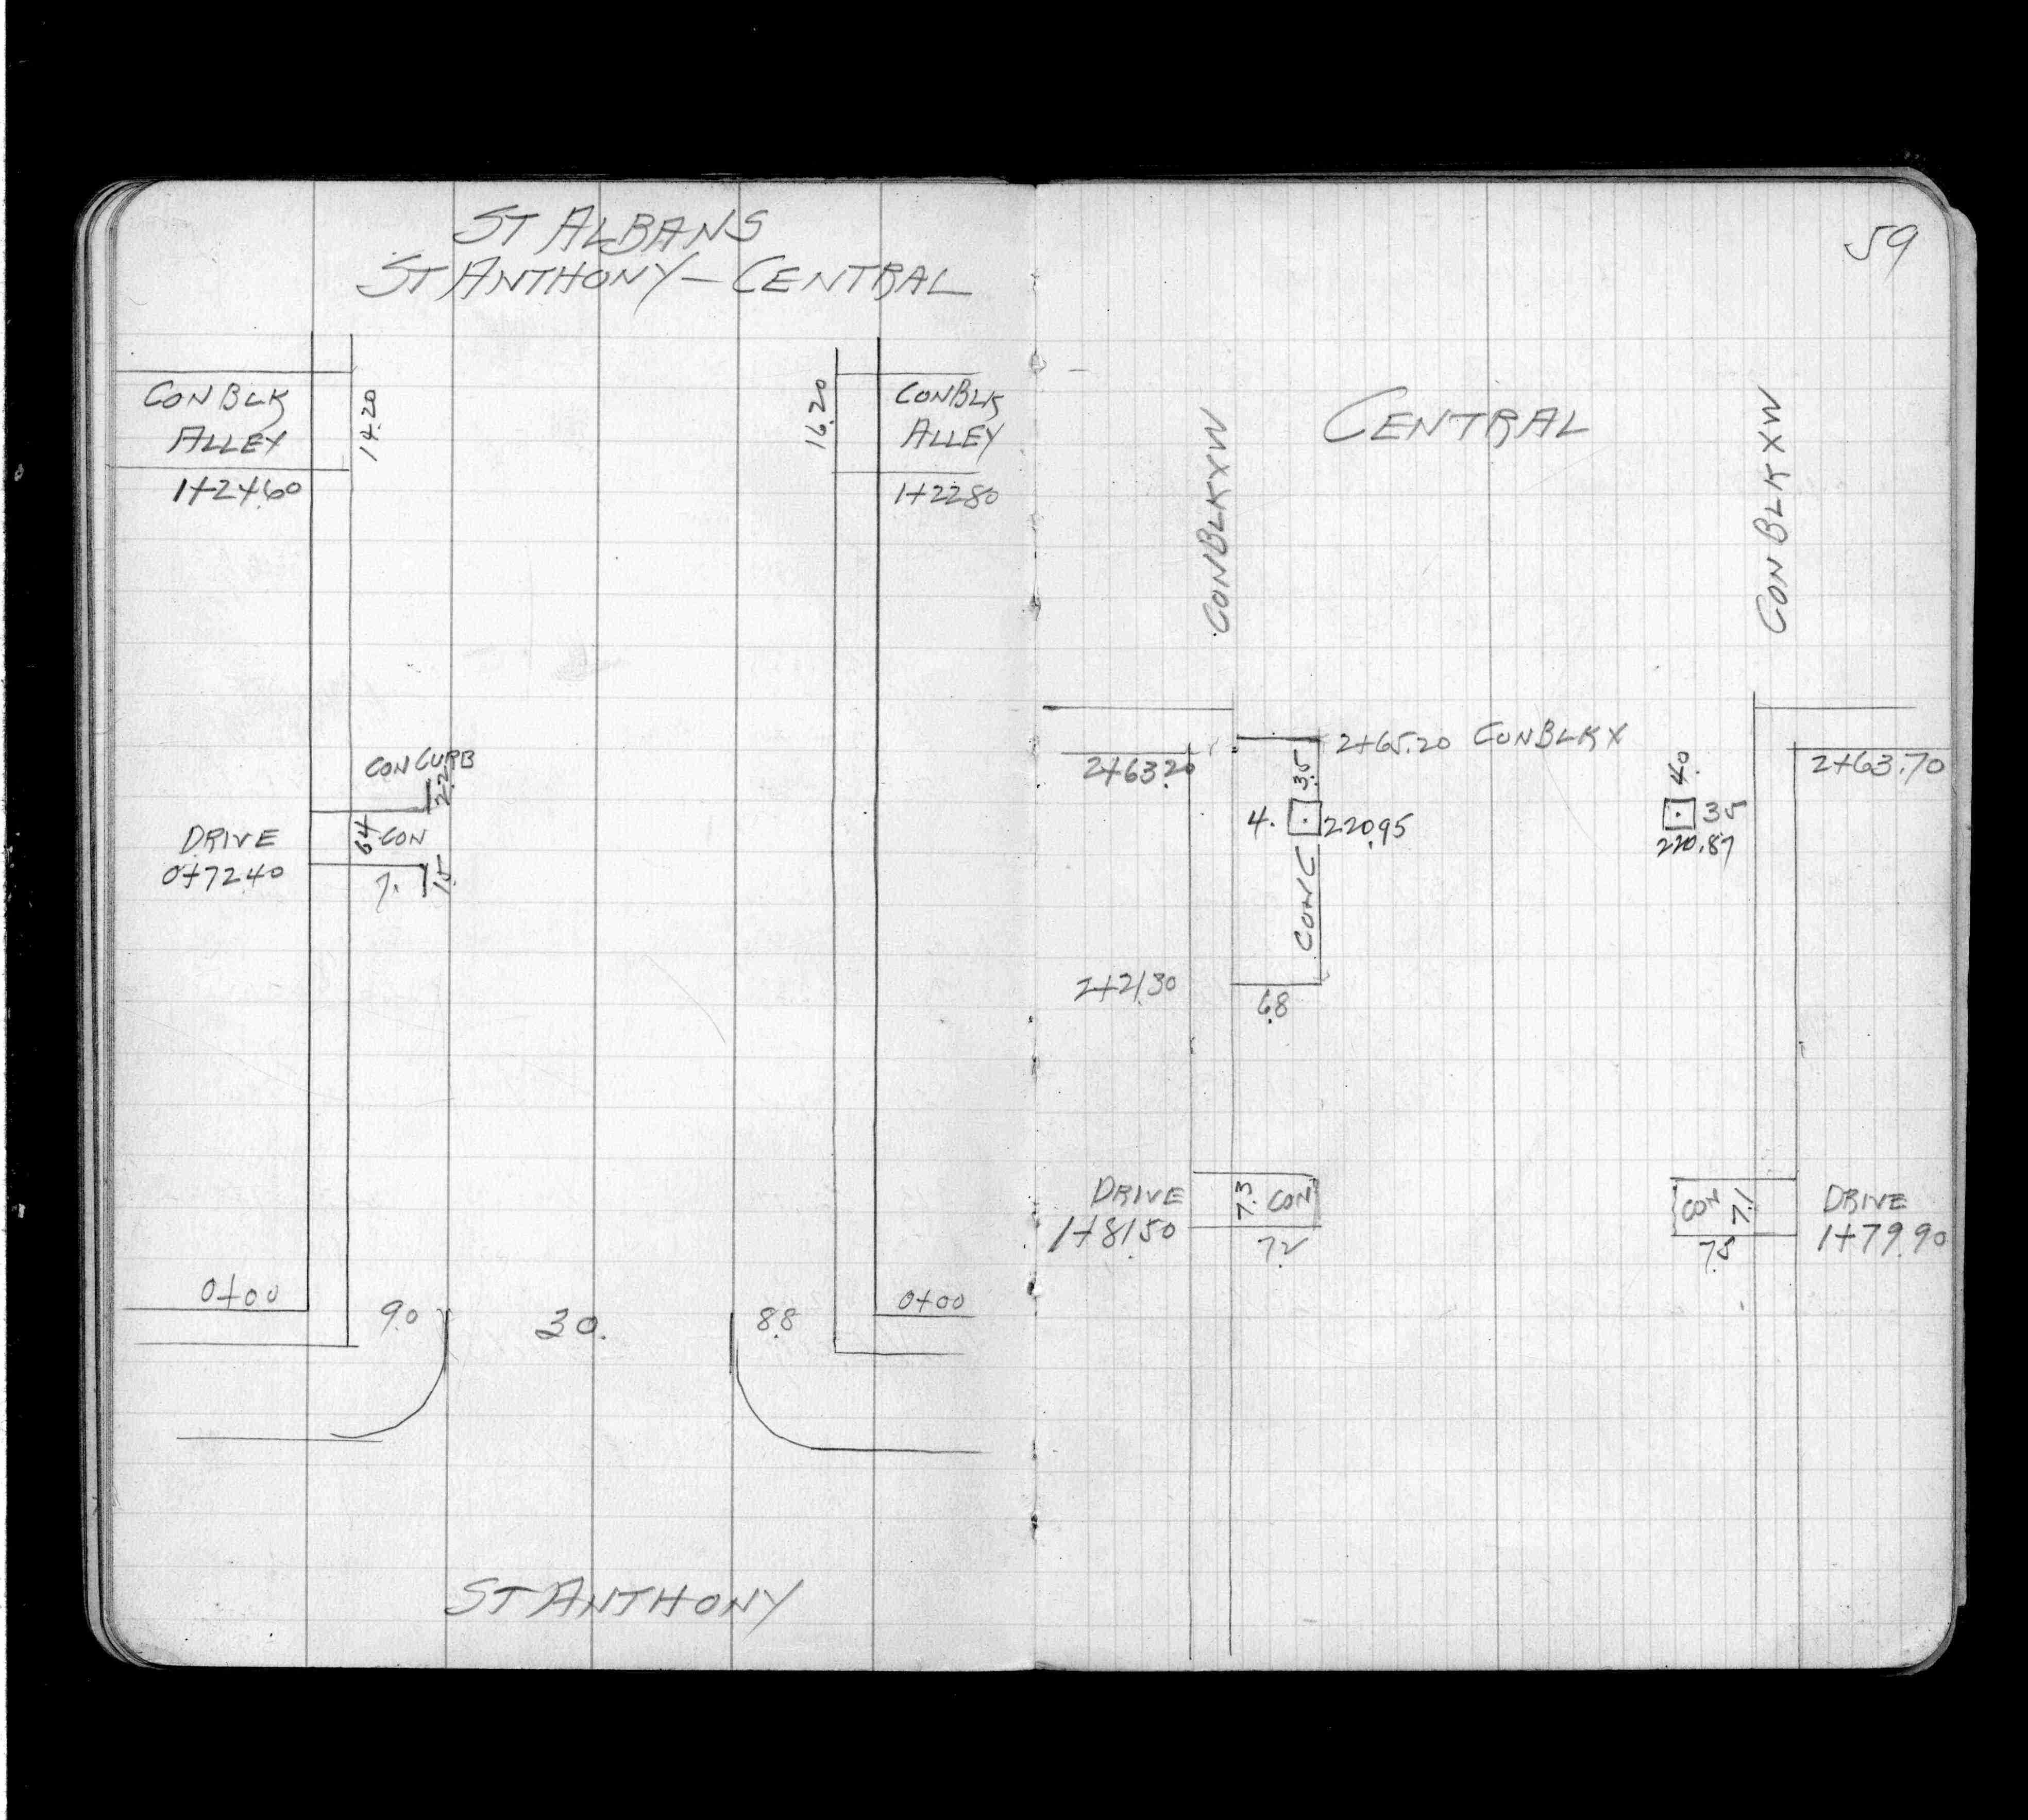 ST ALBANS
ST ANTHONY – CENTRAL
CON BLK
ALLEY
14.20
1+24.60
16.20
CON BLK
ALLEY
1+22.80
CON CURB
2.2
DRIVE
0+72.40
6.4
CON
7.
1.5
0+00
9.0
30.
8.8
0+00
ST ANTHONY
59
CENTRAL
CON BLK XW
CON BLK XW
2+63.20
2+65.20 CON BLK X
2+63.70
3.5
4.
220.95
CONC
4.0
3.5
220.87
2+21.30
6.8
DRIVE
1+81.50
7.3
CON
7.2
CON
7.1
7.5
DRIVE
1+79.90